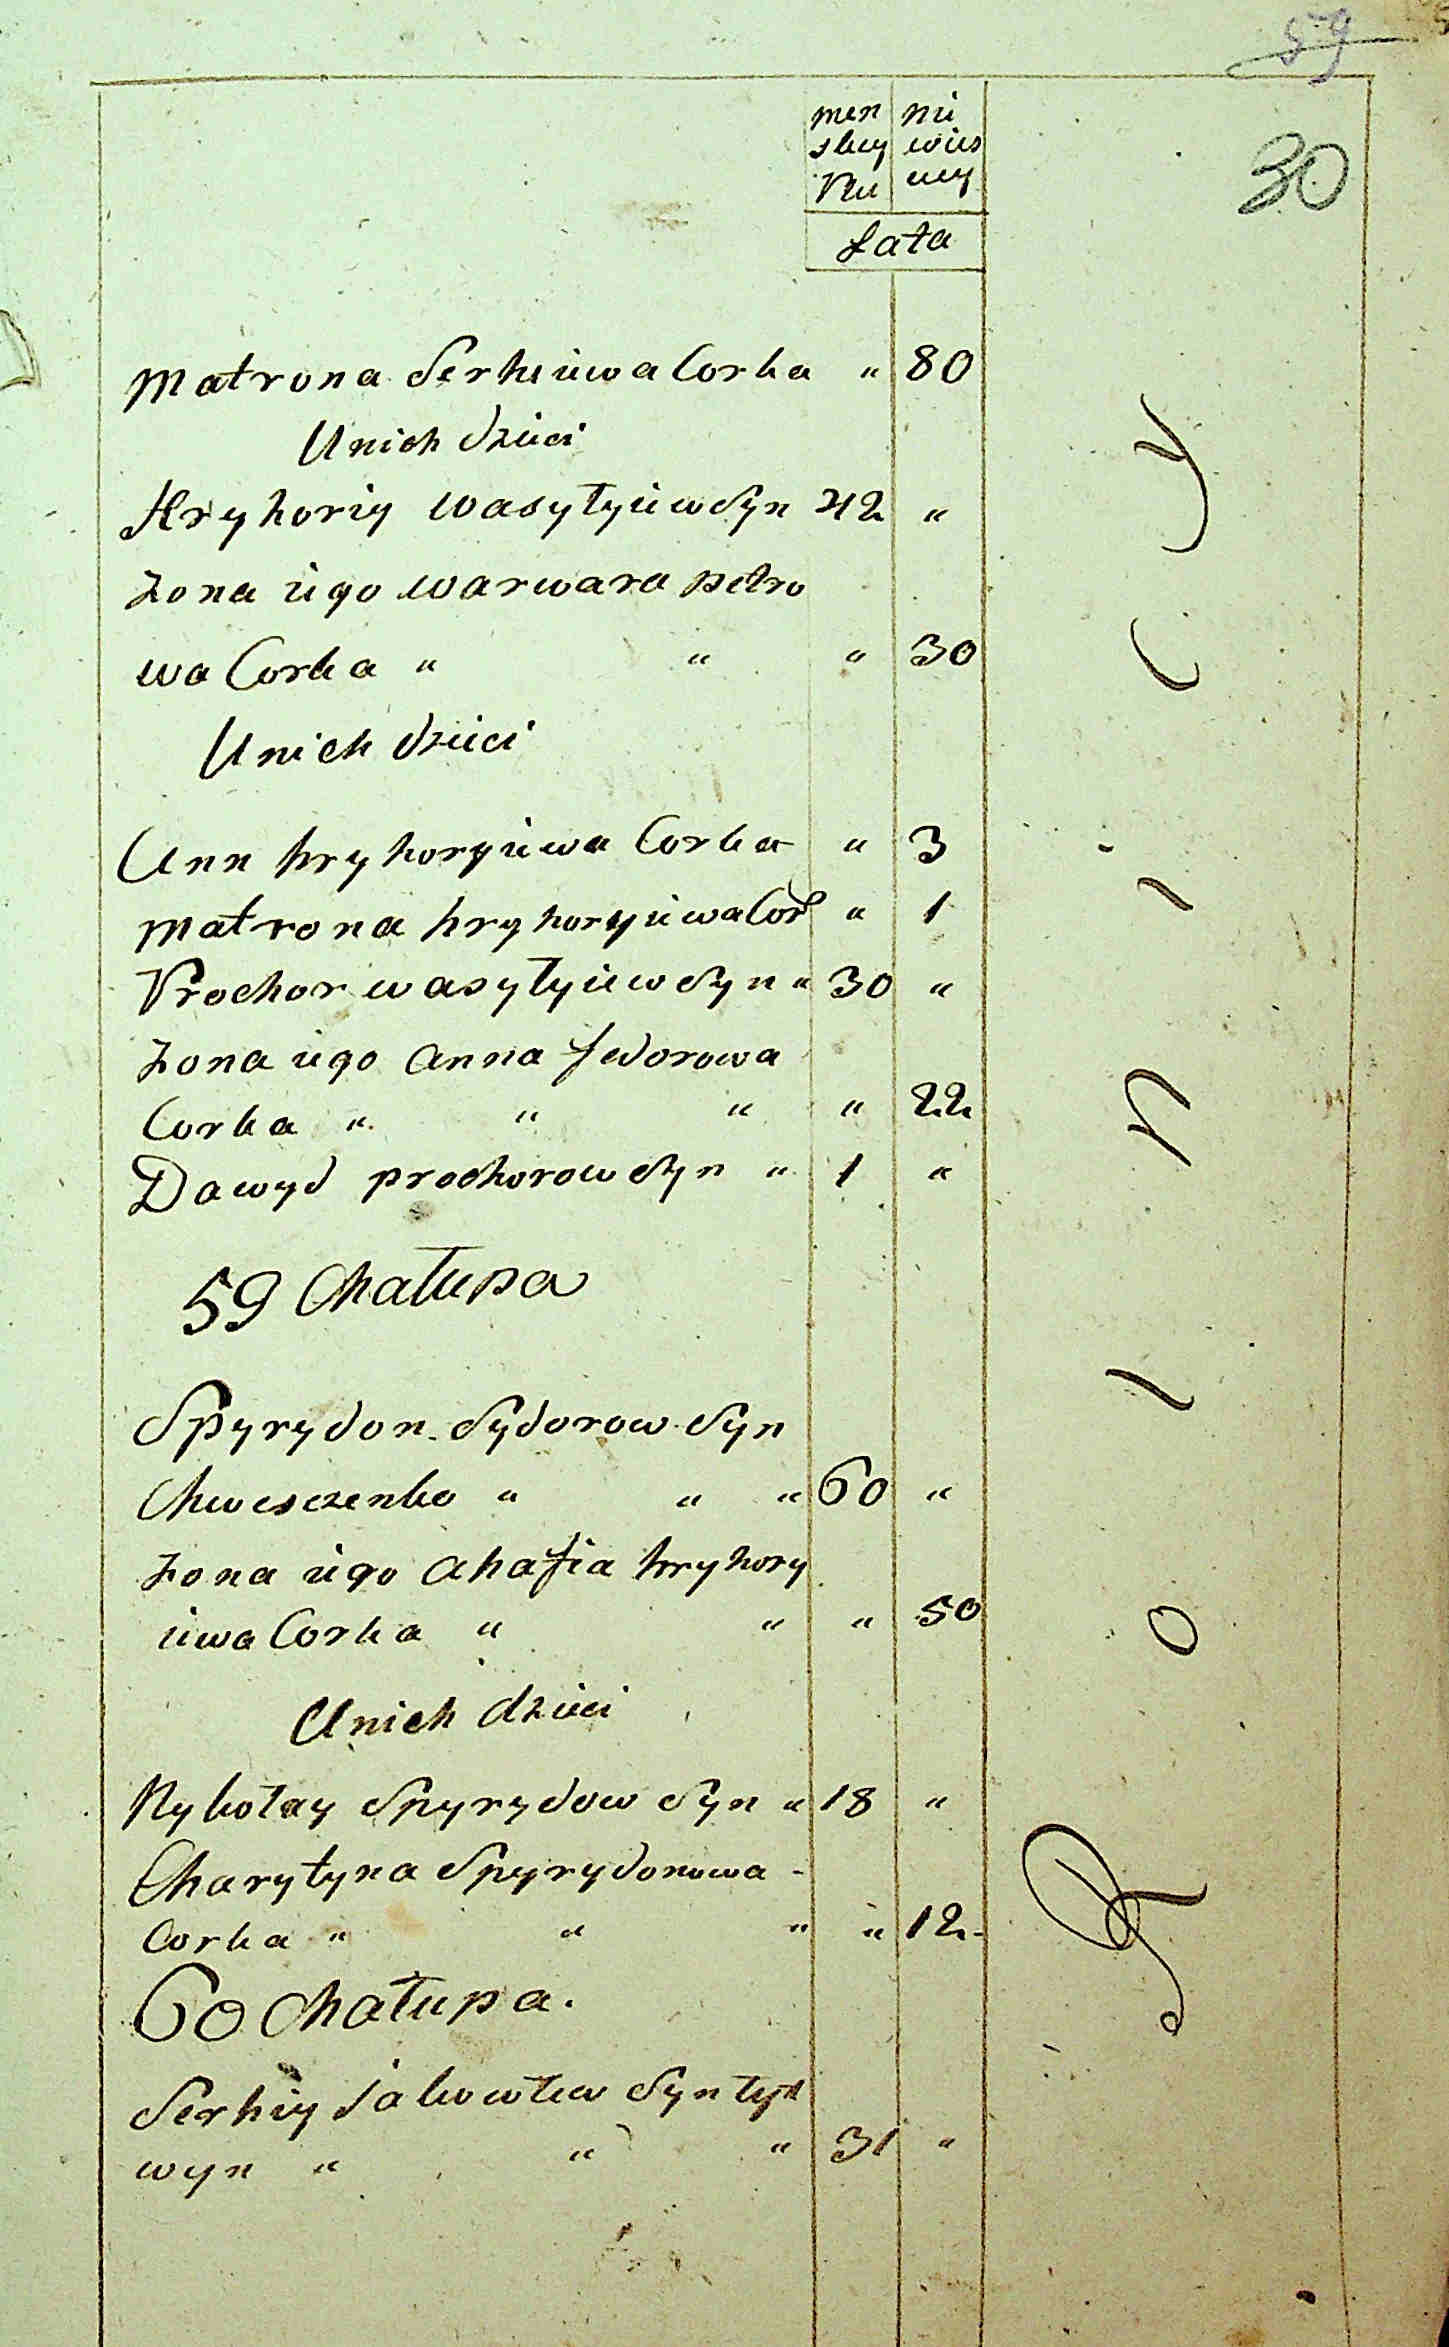 59
30
men niu
skey wies
Płu ucy
Łata
Matrona Serhiiewa Corka " 80
Unich dzieci
Hryhoriy Wasyłyiew Syn 42 "
żona iego Warwara petro
wa Corka " " " 30
Unich dzieci
Ann hryhoryiewa Corka " 3
Matrona hryhoryiewa Cor " 1
Prochor wasyłyiew Syn " 30 "
żona iego Anna fedorowa
Corka " " " " 22
Dawyd prochorow Syn " 1 "
59 Chałupa
Spyrydon Sydorow Syn
Chwesczenko " " " 60 "
żona iego Ahafia hryhory
iewa Corka " " " 50
Unich dzieci
Nykołay Spyrydow Syn " 18 "
Charytyna Spyrydonowa -
Corka " " " " 12
60 Chałupa.
Serhiy Jakowłew Syn
wyn " " " 31 "
R o l n i c y